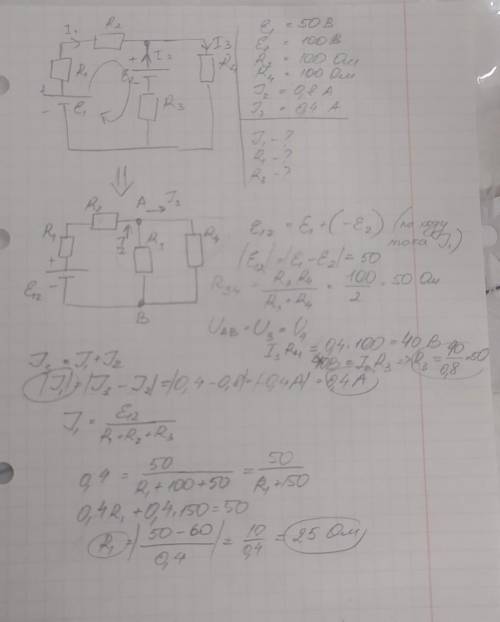 R₂
I₁
I₂
I₃
R₄
R₁
E₂
R₃
+
-
E₁
E₁ = 50 В
E₁ = 100 В
R₂ = 100 Ом
R₄ = 100 Ом
I₂ = 0,8 А
I₃ = 0,4 А
I₁ - ?
R₁ - ?
R₃ - ?
A
I₃
R₂
R₁
I₂
R₃
R₄
+
-
E₁₂
B
E₁₂ = E₁ + (-E₂) (по ходу
тока I₁)
|E₁₂| = |E₁ - E₂| = 50
R₃₄ = R₃ R₄ / R₃ + R₄ = 100 / 2 = 50 Ом
U_AB = U₃ = U₄
I₃ R₄ = 0,4 · 100 = 40 В
= I₂ R₃ => R₃ = 40 / 0,8 = 50
I₃ = I₁ + I₂
|I₁| = |I₃ - I₂| = |0,4 - 0,8| = |-0,4А| = 0,4 А
I₁ = E₁₂ / R₁ + R₂ + R₃
0,4 = 50 / R₁ + 100 + 50 = 50 / R₁ + 150
0,4R₁ + 0,4 · 150 = 50
R₁ = |50 - 60 / 0,4| = 10 / 0,4 = 25 Ом